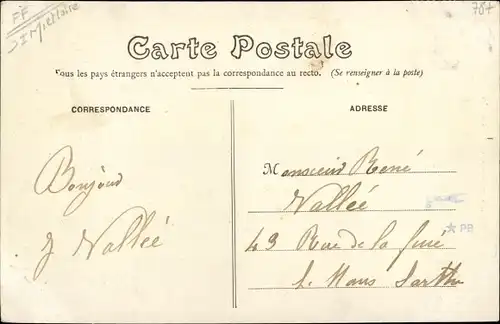 FF
Militaire
787
Carte Postale
Tous les pays étrangers n'acceptent pas la correspondance au recto. (Se renseigner à la poste)
CORRESPONDANCE
ADRESSE
Bonjour
J Vallée
Monsieur René
Vallée
★ PB
43 Rue de la
Mans Sarthe